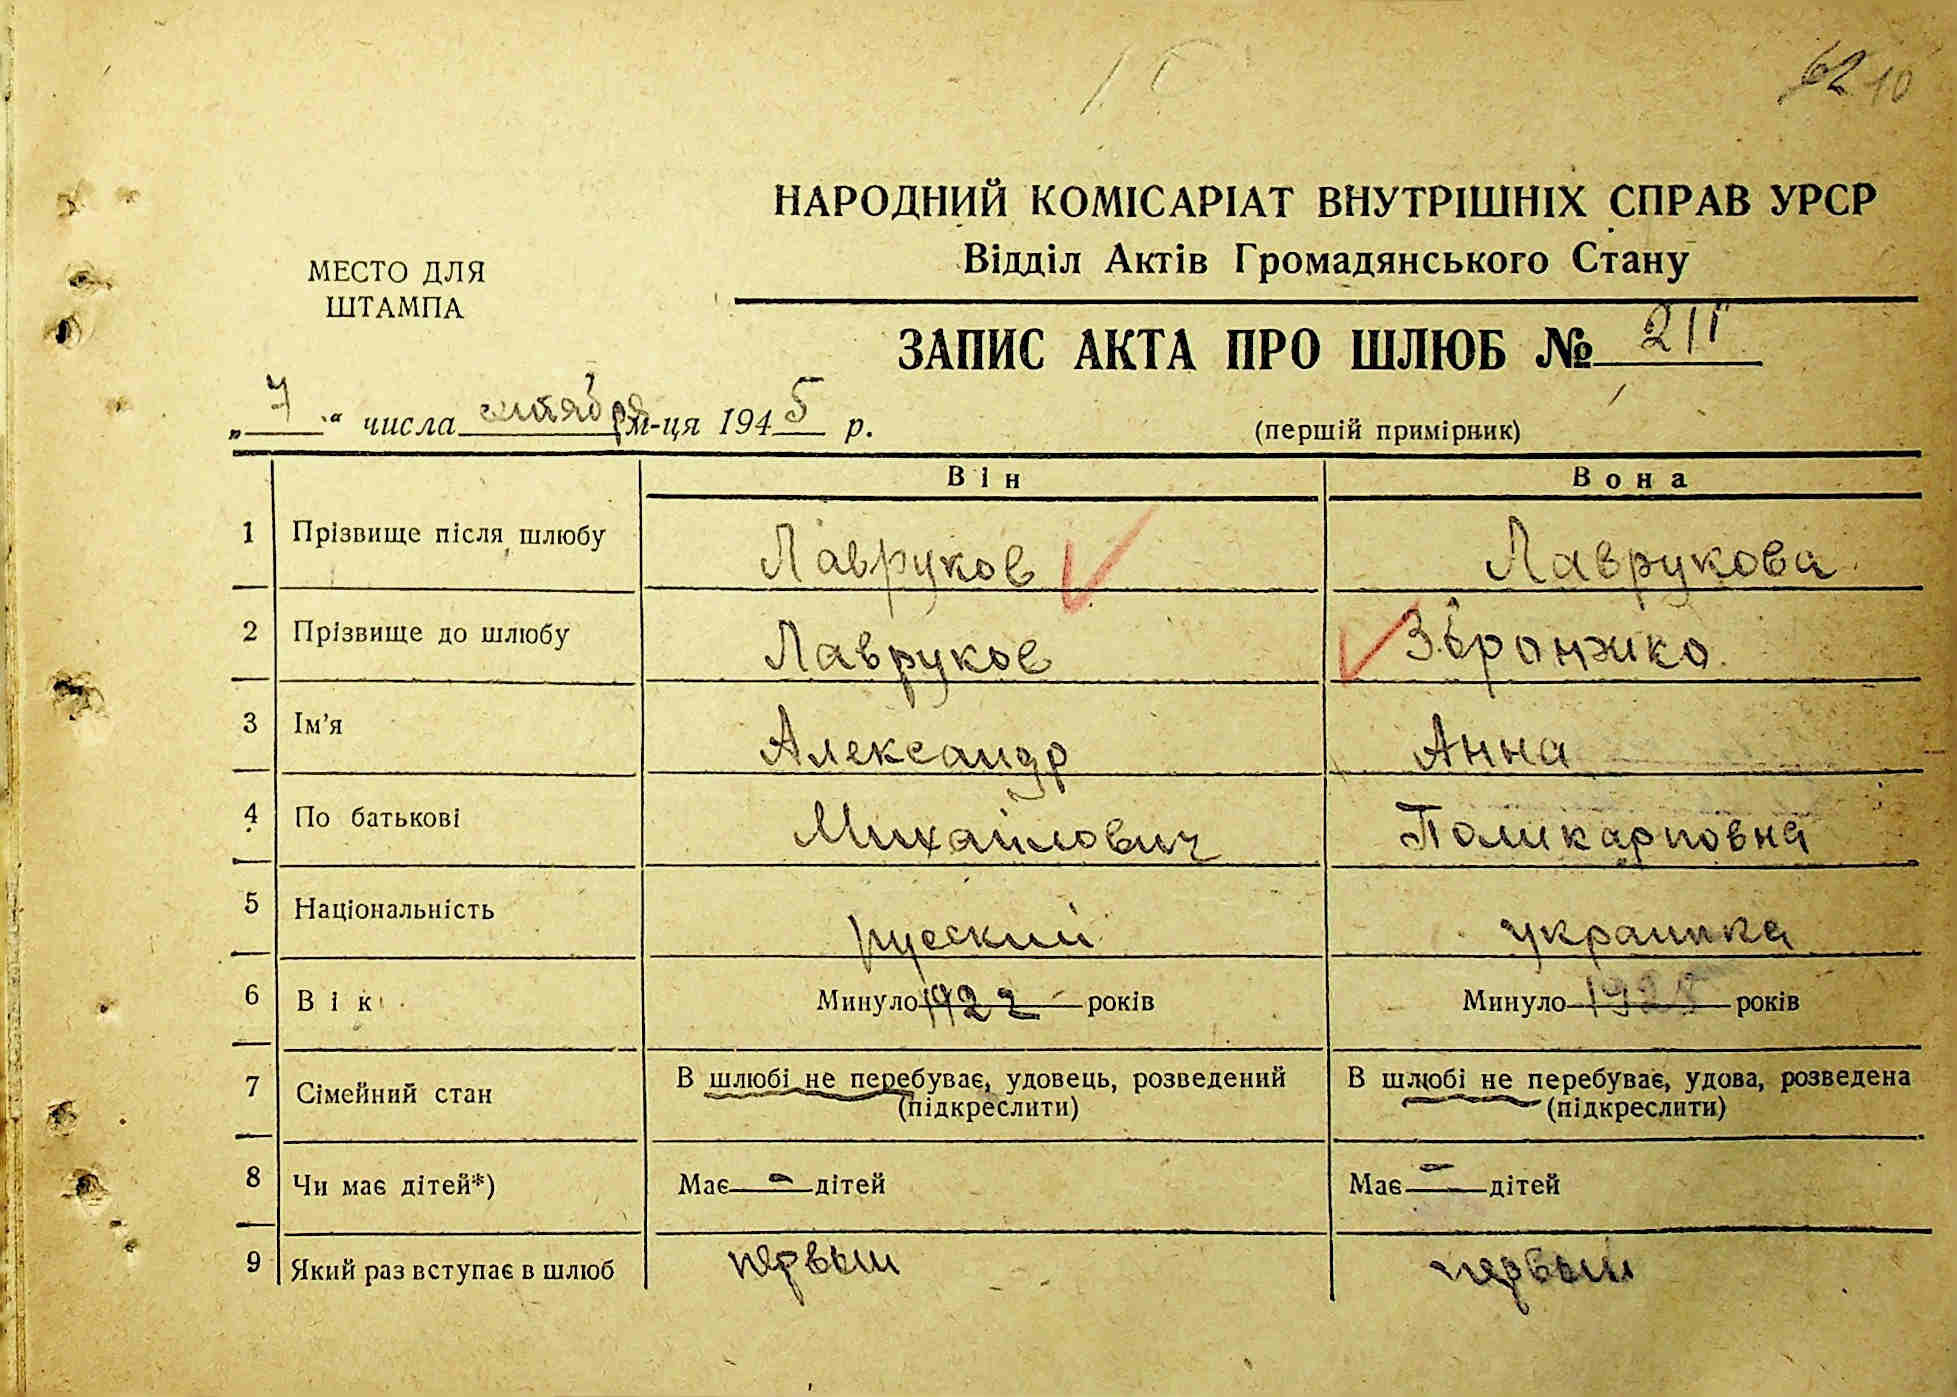 62 10
НАРОДНИЙ КОМІСАРІАТ ВНУТРІШНІХ СПРАВ УРСР
Відділ Актів Громадянського Стану
МЕСТО ДЛЯ
ШТАМПА
ЗАПИС АКТА ПРО ШЛЮБ № 211
„ 7 “ числа м-ця 1945 р.
(першій примірник)
Він Вона
1 Прізвище після шлюбу Лавруков Лаврукова
2 Прізвище до шлюбу Лавруков
3 Ім'я Александр Анна
4 По батькові Михайлович Поликарповна
5 Національність русский украинка
6 Вік Минуло 1922 років Минуло 1925 років
7 Сімейний стан В шлюбі не перебуває, удовець, розведений В шлюбі не перебуває, удова, розведена
(підкреслити) (підкреслити)
8 Чи має дітей*) Має - дітей Має - дітей
9 Який раз вступає в шлюб первый первый